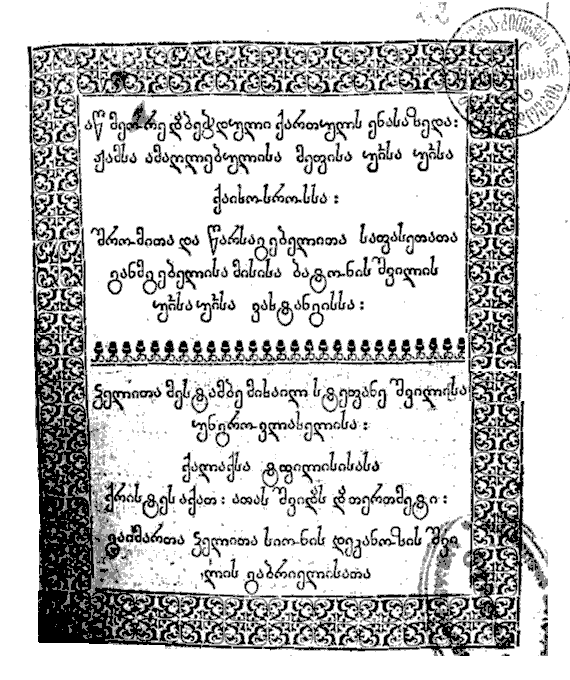 აწ მეორედ დაბეჭდული ქართულის ენასა ზედა:
ჟამსა ამაღლებულისა მეფისა უფ̃სა უფ̃სა
ქაიხოსროსსა:
შრომითა და წარსაგებელითა საფასეთათა
განმგებელისა მისისა ბატონის შვილის
უფ̃სა უფ̃სა ვახტანგისსა:
ჴელითა მესტამბე მიხაილ სტეფანე შვილისა
უნგროვლახელისა:
ქალაქსა ტფილისისასა
ქრისტეს აქათ: ათას შვიდას დ̃ თერთმეტი:
გაიმართა ჴელითა სიონის დეკანოზის შვი
ლის გაბრიელისათა